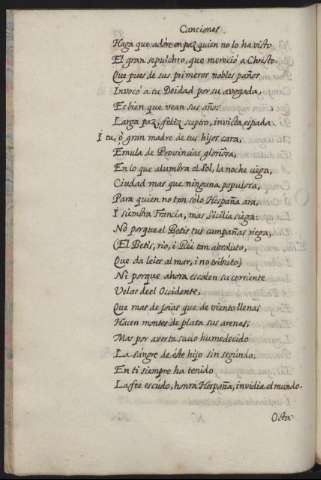 Canciones
Haga que adore en paz quien no lo ha visto
El gran sepulchro, que mereció a Christo.
Que pues de sus primeros nobles paños
Invocó a tu Deidad por su avogada,
Es bien que vean sus años
Larga paz, feliz sceptro, invicta espada.
I tu, ò gran madre de tus hijos cara,
Emula de Provincias gloriosa,
En lo que alumbra el Sol, la noche ciega,
Ciudad mas que ninguna populosa,
Para quien no tan solo Hespaña ara,
I siembra Francia, mas Sicilia siega:
No porque el Betis tus campañas riega,
(El Betis, rio, i Rei tan absoluto,
Que da leies al mar, i no tributo)
Ni porque ahora escalen su corriente
Velas de el Occidente,
Que mas de joias que de viento llenas
Hacen montes de plata sus arenas;
Mas por averte suio humedecido
La sangre de este hijo sin segundo,
En ti siempre ha tenido
La fee escudo, honra Hespaña, invidia el mundo.